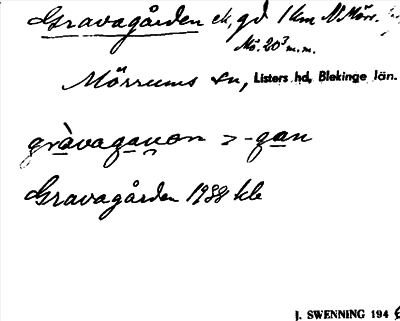 Gravagården ek, gd 1 km N Mörr.
Mö. 203 m.m.
Mörrums sn, Listers hd, Blekinge län.
gràvagaɳon > -gan
Gravagården 1938 kle
J. SWENNING 194